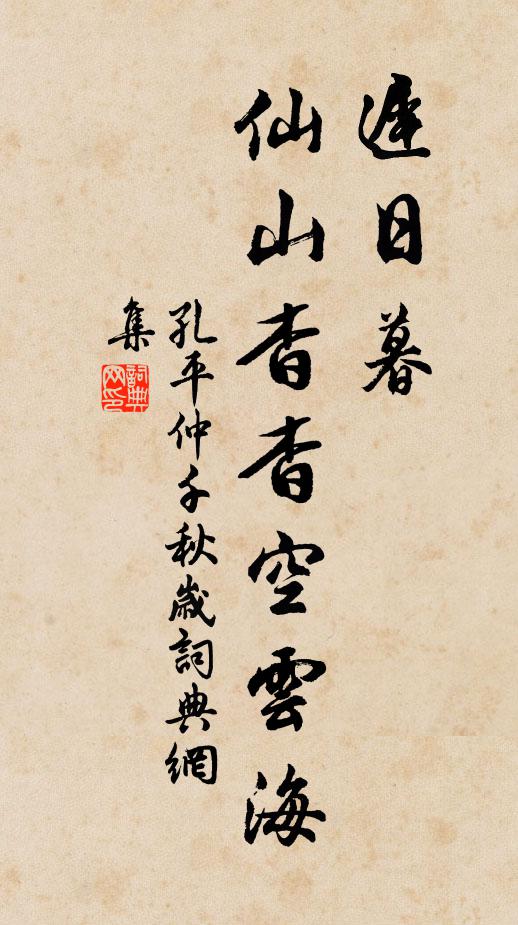 遲日暮
仙山杳杳空雲海
孔平仲千秋歲詞典網
集
詞典
网印